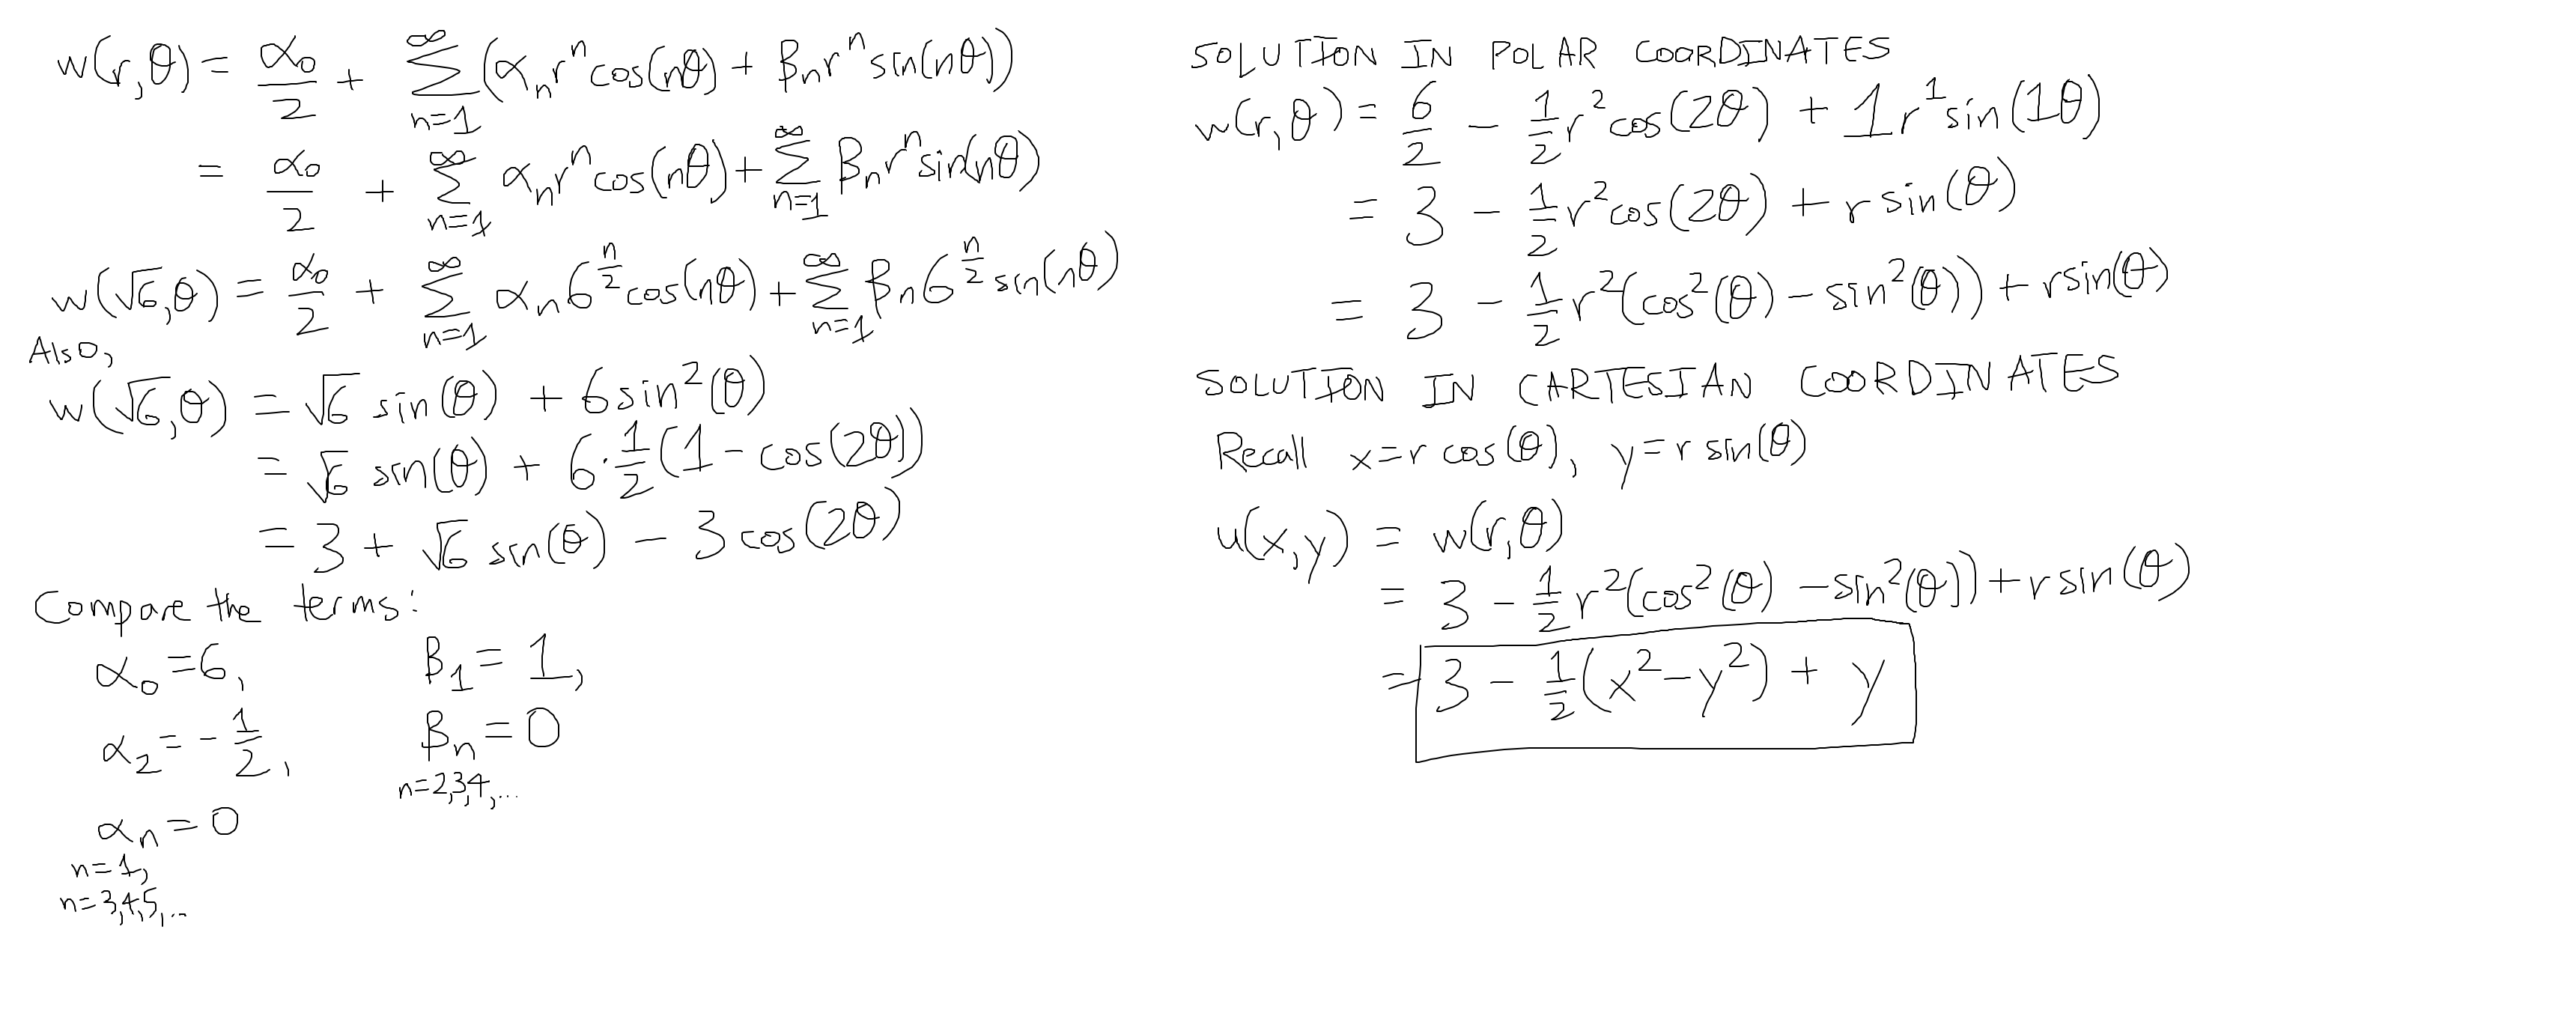 w(r,θ) = α₀/2 + ∑_{n=1}^{∞} (αₙrⁿcos(nθ) + βₙrⁿsin(nθ))
= α₀/2 + ∑_{n=1}^{∞} αₙrⁿcos(nθ) + ∑_{n=1}^{∞} βₙrⁿsin(nθ)
w(√6,θ) = α₀/2 + ∑_{n=1}^{∞} αₙ6^{n/2}cos(nθ) + ∑_{n=1}^{∞} βₙ6^{n/2}sin(nθ)
Also,
w(√6,θ) = √6 sin(θ) + 6sin²(θ)
= √6 sin(θ) + 6·1/2(1-cos(2θ))
= 3 + √6 sin(θ) - 3cos(2θ)
Compare the terms:
α₀ = 6, β₁ = 1,
α₂ = -1/2, βₙ = 0
n=2,3,4,...
αₙ = 0
n=1,
n=3,4,5,...
SOLUTION IN POLAR COORDINATES
w(r,θ) = 6/2 - 1/2r²cos(2θ) + 1r¹sin(1θ)
= 3 - 1/2r²cos(2θ) + rsin(θ)
= 3 - 1/2r²(cos²(θ) - sin²(θ)) + rsin(θ)
SOLUTION IN CARTESIAN COORDINATES
Recall x=r cos(θ), y=r sin(θ)
u(x,y) = w(r,θ)
= 3 - 1/2r²(cos²(θ) - sin²(θ)) + rsin(θ)
= 3 - 1/2(x²-y²) + y